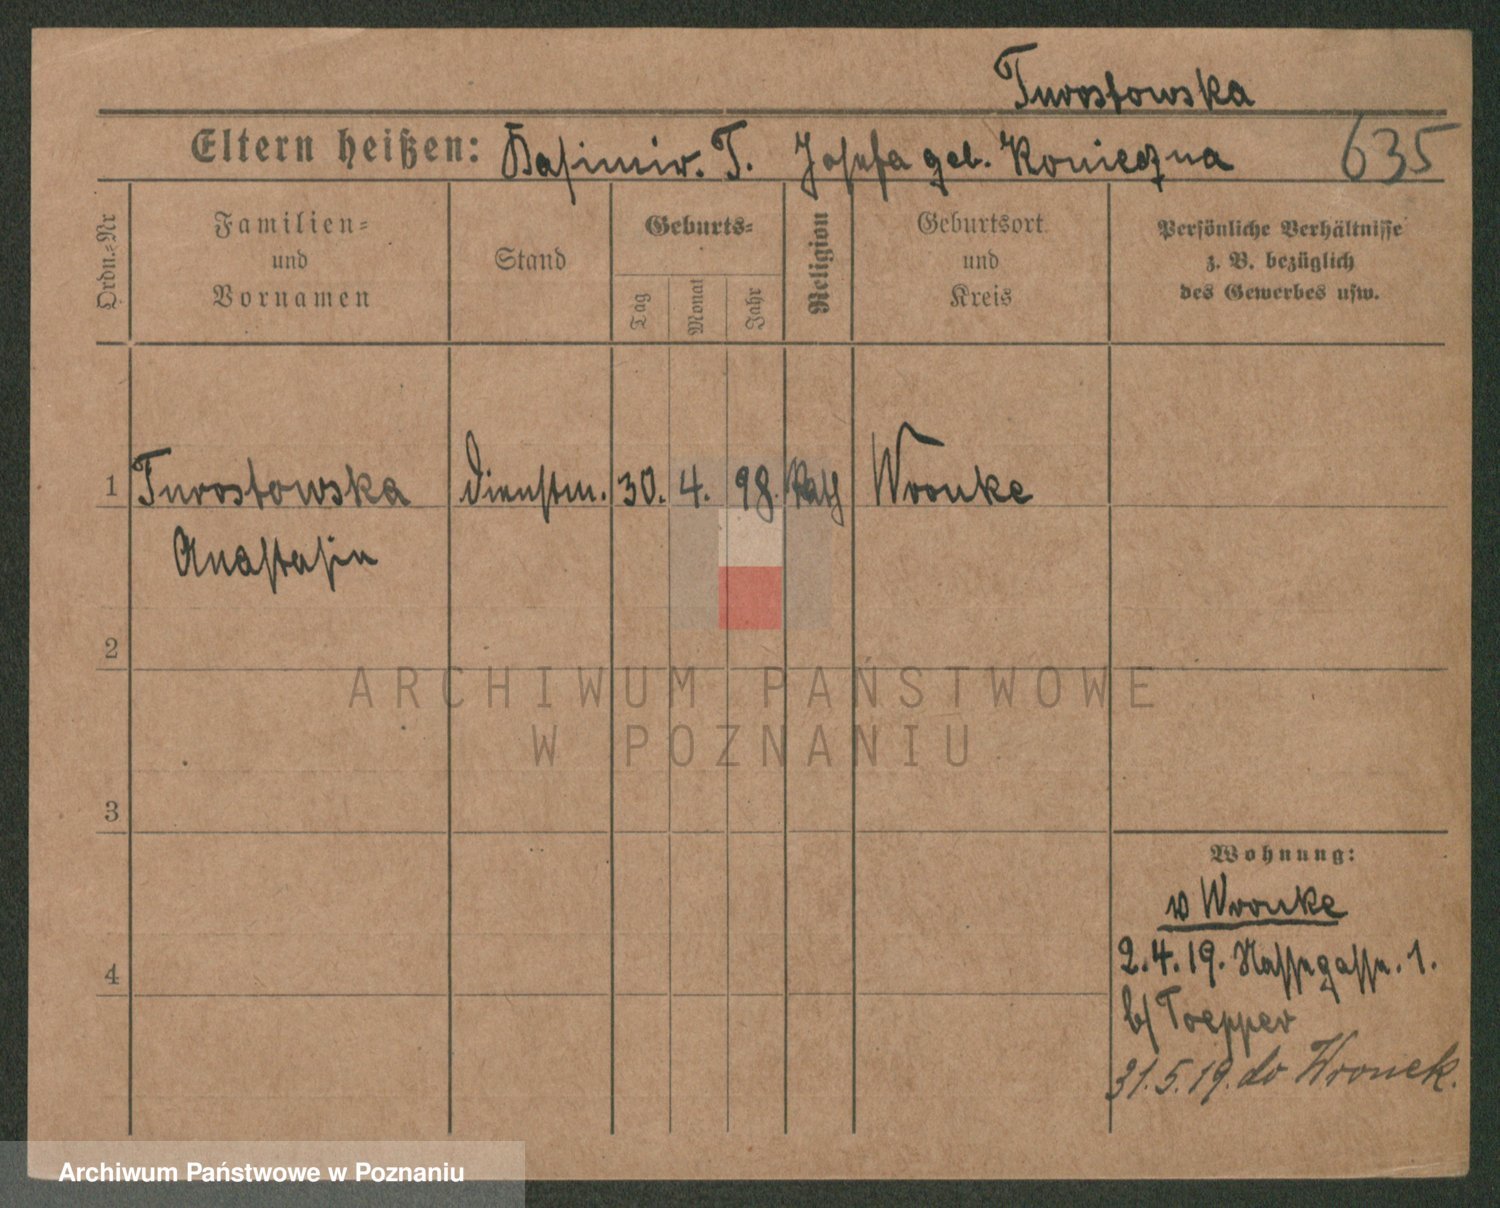 Turostowska
Eltern heißen: Kasimir. T. Josefa geb. Konieczna 635
Ordn.=Nr
Familien=
und
Vornamen
Stand
Geburts=
Tag
Monat
Jahr
Religion
Geburtsort
und
Kreis
Persönliche Verhältnisse
z. B. bezüglich
des Gewerbes usw.
1 Turostowska Dienstm. 30. 4. 98. Kath Wronke
Anastasia
2
3
4
Wohnung:
v Wronke
2.4.19. Nassegasse. 1.
b/ Toepper
31.5.19. do Wronek.
ARCHIWUM PAŃSTWOWE
W POZNANIU
Archiwum Państwowe w Poznaniu